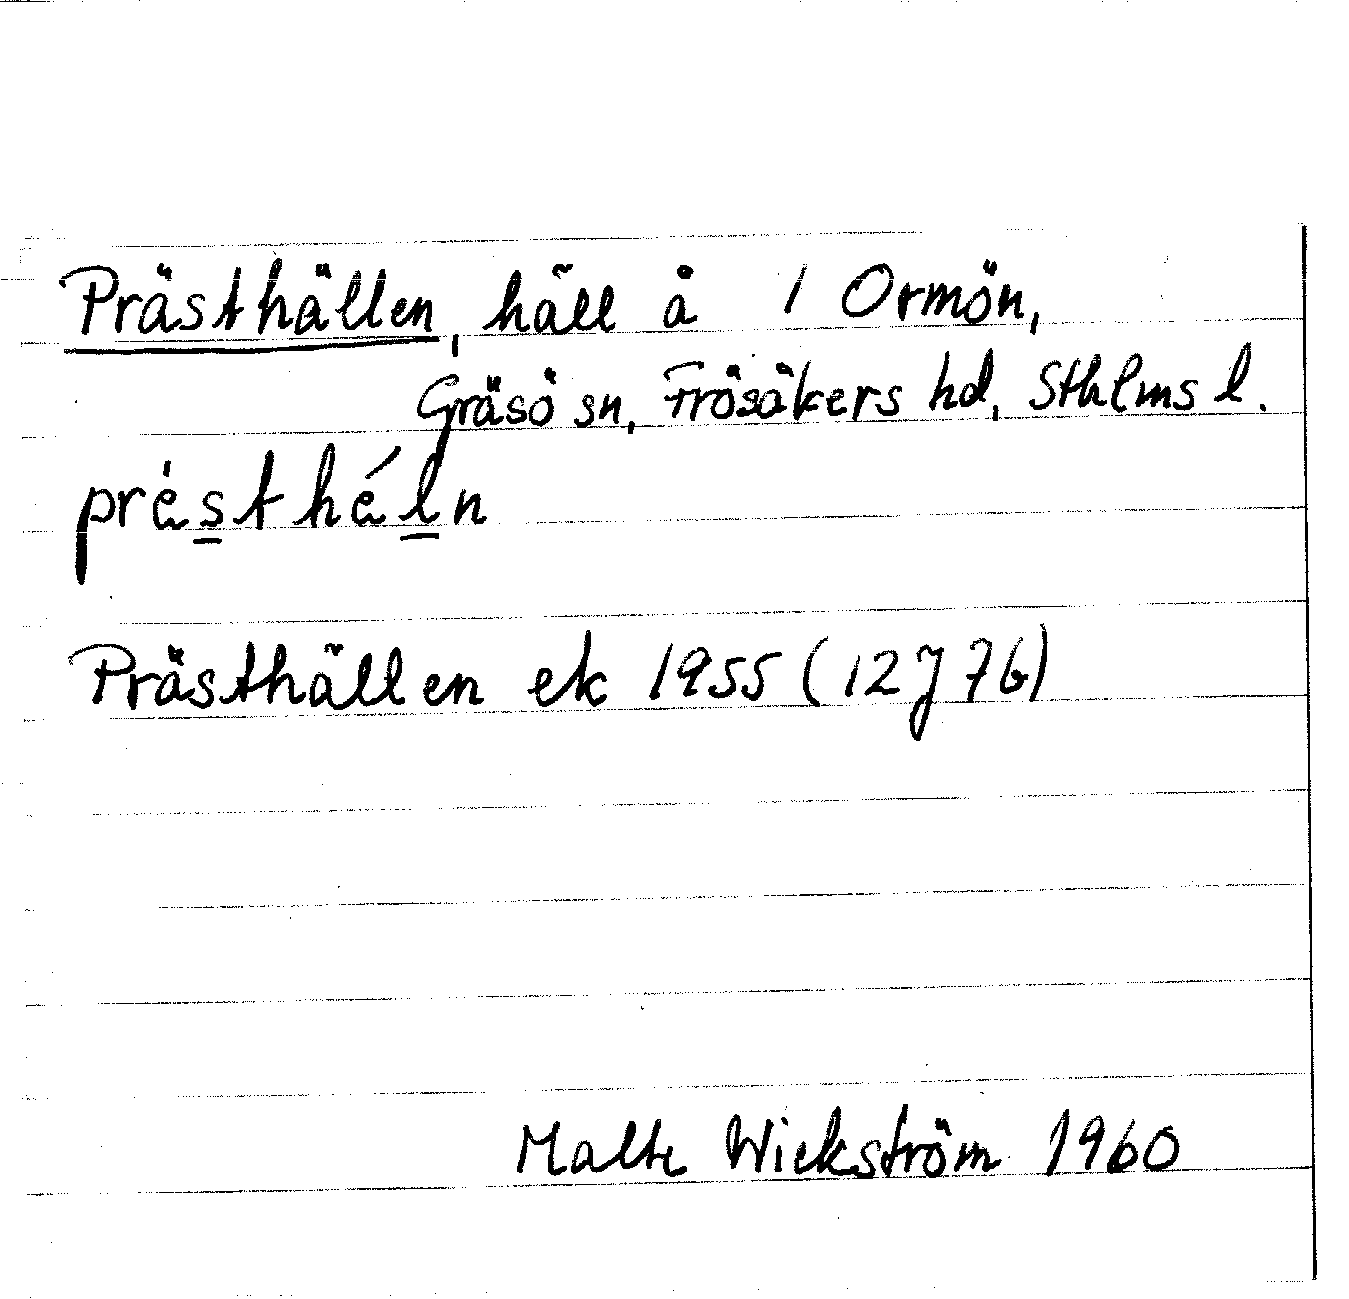 Prästhällen, häll å 1 Ormön,
Gräsö sn, Frösåkers hd, Sthlms l.
présthéln
Prästhällen ek 1955 (12J7b)
Malte Wickström 1960